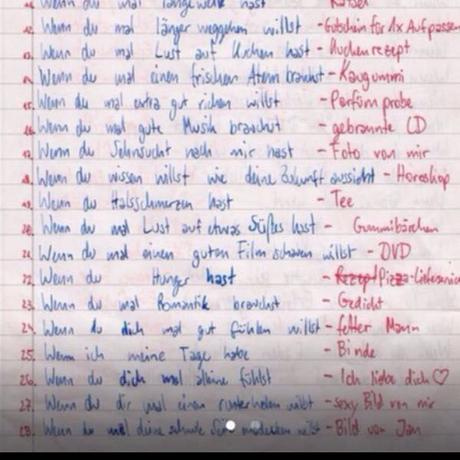 Wenn du mal langeweile hast - Rätsel
12. Wenn du mal länger weggehen willst - Gutschein für 1x Aufpassen
13. Wenn du mal Lust auf Kuchen hast - Kuchenrezept
14. Wenn du mal einen frischen Atem brauchst - Kaugummi
15. Wenn du mal extra gut richen willst - Parfümprobe
16. Wenn du mal gute Musik brauchst - gebrannte CD
17. Wenn du Sehnsucht nach mir hast - Foto von mir
18. Wenn du wissen willst wie deine Zukunft aussieht - Horoskop
19. Wenn du Halsschmerzen hast - Tee
20. Wenn du mal Lust auf etwas Süßes hast - Gummibärchen
21. Wenn du mal einen guten Film schauen willst - DVD
22. Wenn du Hunger hast - Rezept Pizza-Lieferservice
23. Wenn du mal Romantik brauchst - Gedicht
24. Wenn du dich mal gut fühlen willst - fetter Mann
25. Wenn ich meine Tage habe - Binde
26. Wenn du dich mal alleine fühlst - Ich liebe dich ♡
27. Wenn du dir mal einen runterholen willst - sexy Bild von mir
28. Wenn du mal deine willst - Bild von Jan